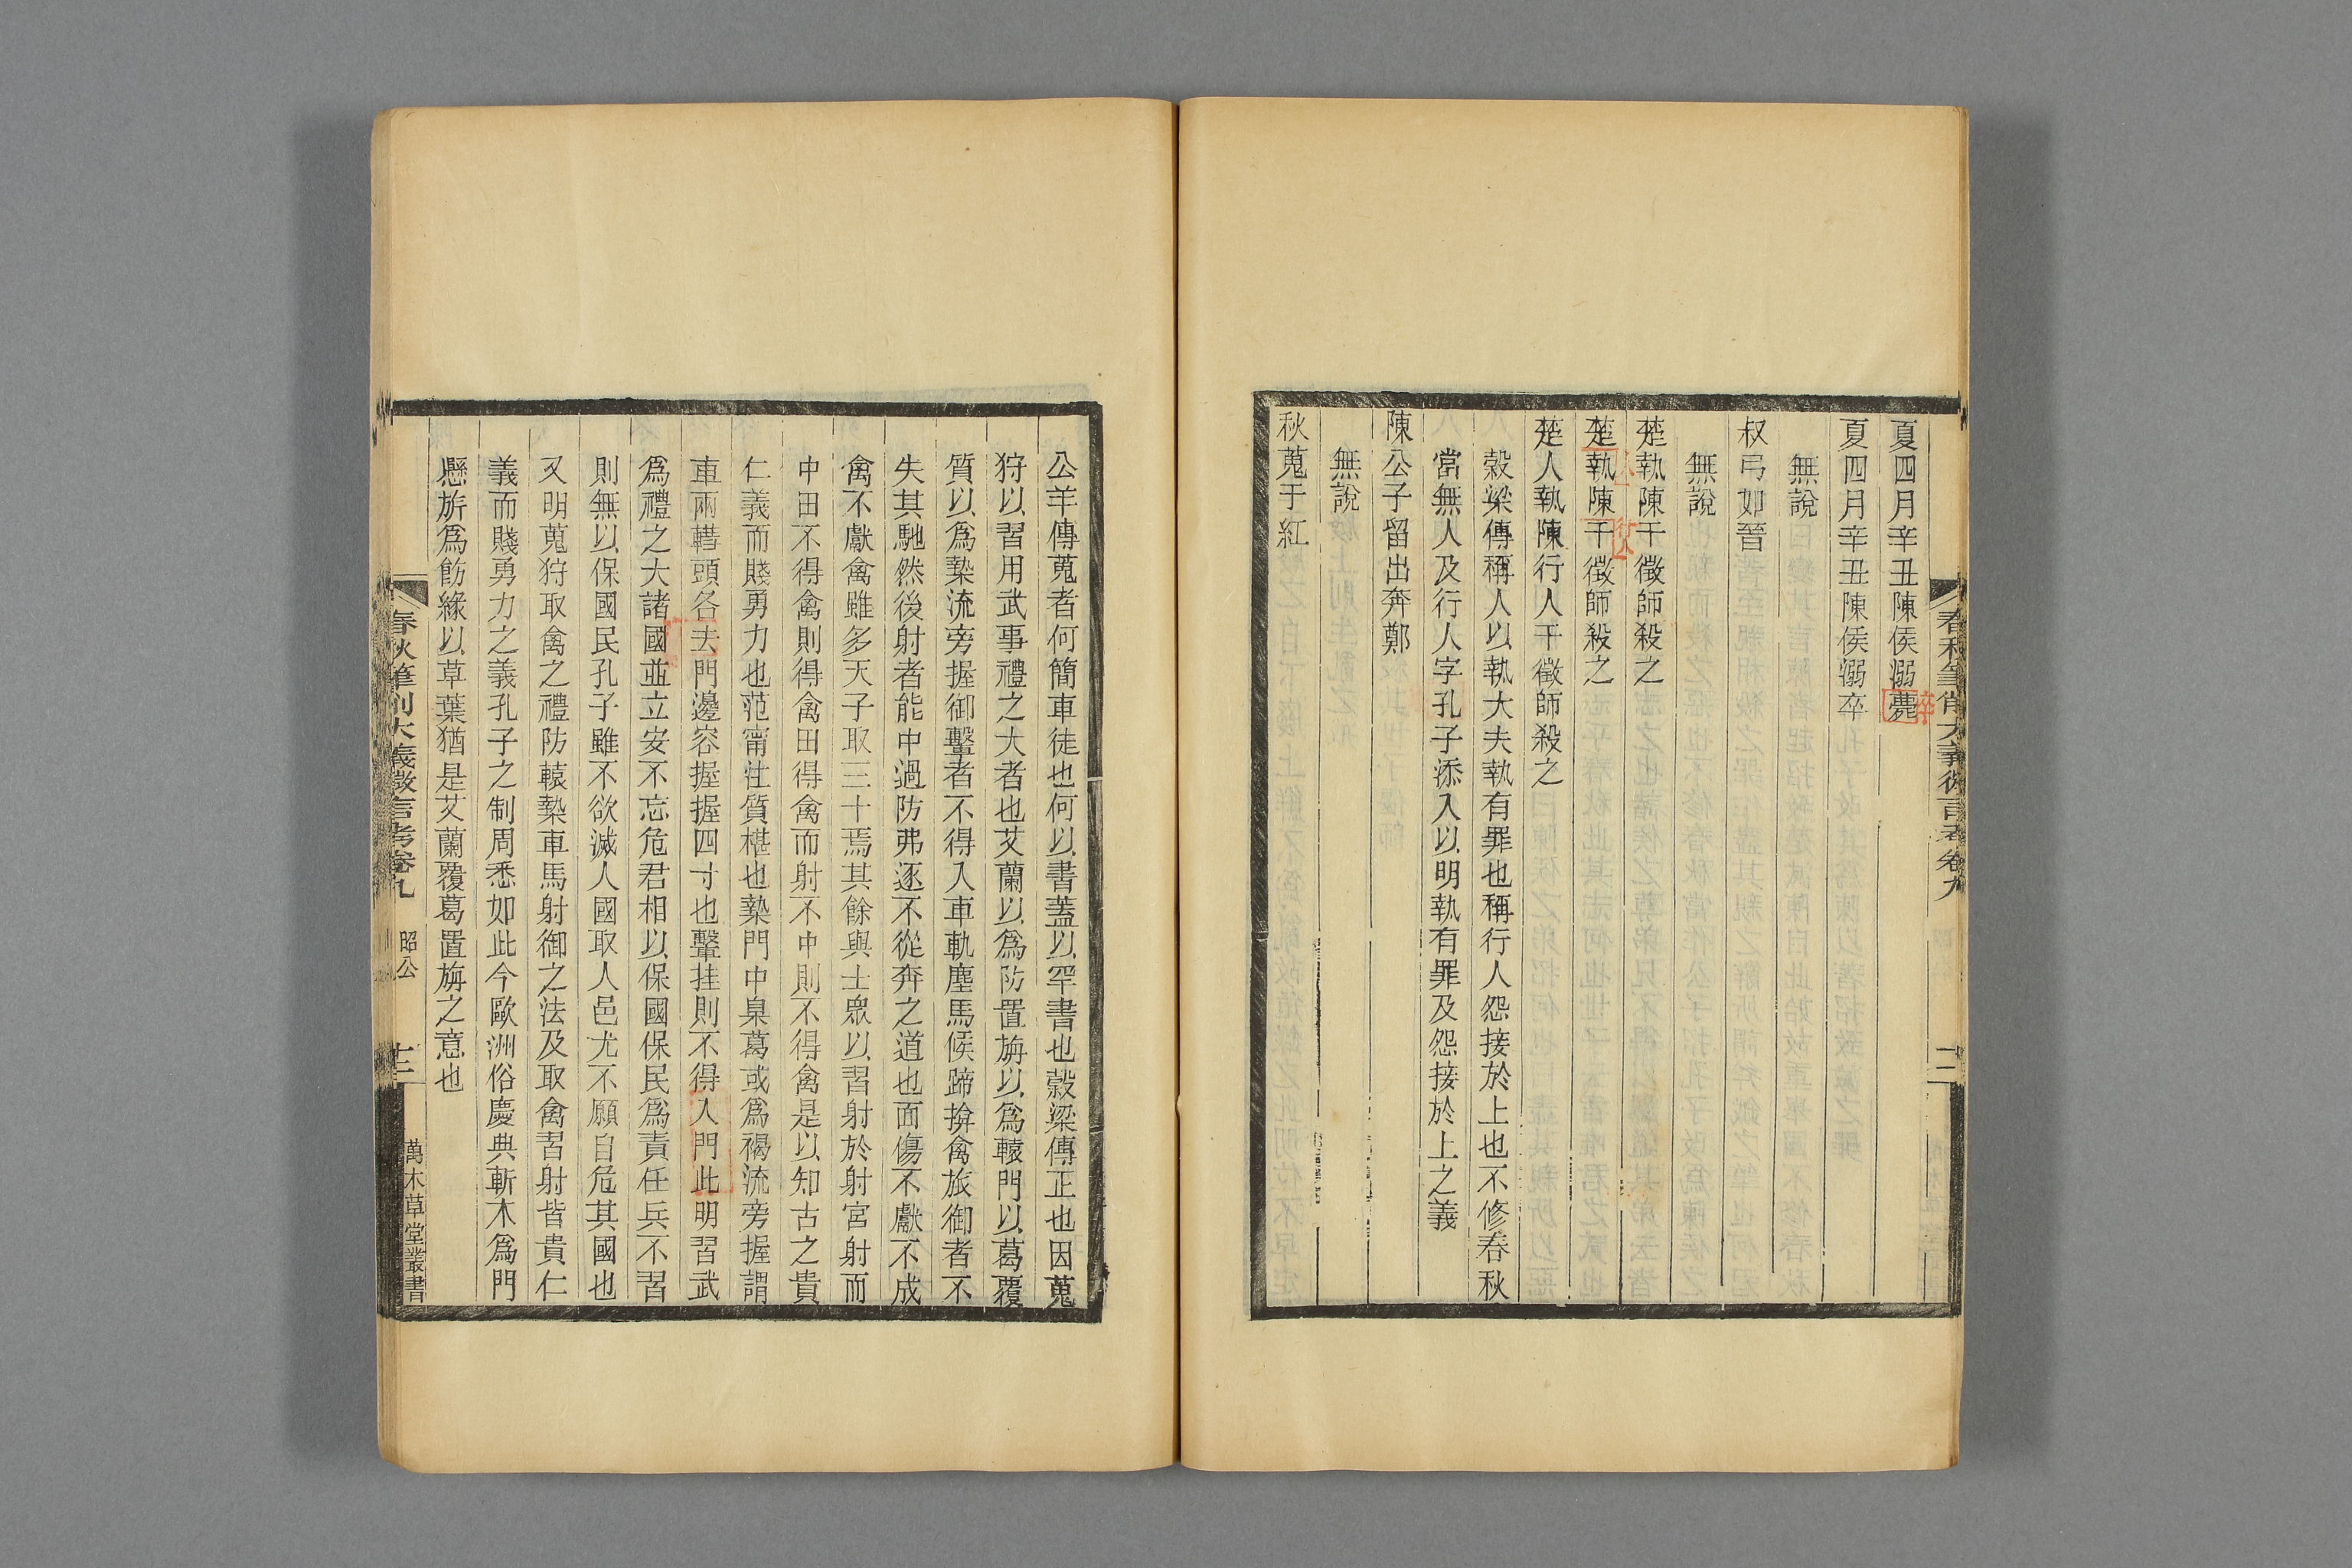 春秋筆削大義微言考卷九
十二
夏四月辛丑陳侯溺薨
卒
夏四月辛丑陳侯溺卒
無說
叔弓如晉
無說
楚執陳干徵師殺之
楚執陳干徵師殺之
人
行人
楚人執陳行人干徵師殺之
穀梁傳稱人以執大夫執有罪也稱行人怨接於上也不修春秋
當無人及行人字孔子添入以明執有罪及怨接於上之義
陳公子留出奔鄭
無說
秋蒐于紅
公羊傳蒐者何簡車徒也何以書蓋以罕書也穀梁傳正也因蒐
狩以習用武事禮之大者也艾蘭以爲防置旃以爲轅門以葛覆
質以爲槷流旁握御轚者不得入車軌塵馬候蹄揜禽旅御者不
失其馳然後射者能中過防弗逐不從奔之道也面傷不獻不成
禽不獻禽雖多天子取三十焉其餘與士眾以習射於射宮射而
中田不得禽則得禽田得禽而射不中則不得禽是以知古之貴
仁義而賤勇力也范甯注質椹也槷門中臬葛或爲褐流旁握謂
車兩轊頭各去門邊容握握四寸也轚挂則不得入門此明習武
爲禮之大諸國並立安不忘危君相以保國保民爲責任兵不習
則無以保國民孔子雖不欲滅人國取人邑尤不願自危其國也
又明蒐狩取禽之禮防轅槷車馬射御之法及取禽習射皆貴仁
義而賤勇力之義孔子之制周悉如此今歐洲俗慶典斬木爲門
懸旂爲飾緣以草葉猶是艾蘭覆葛置旃之意也
春秋筆削大義微言考卷九
昭公
十二
萬木草堂叢書